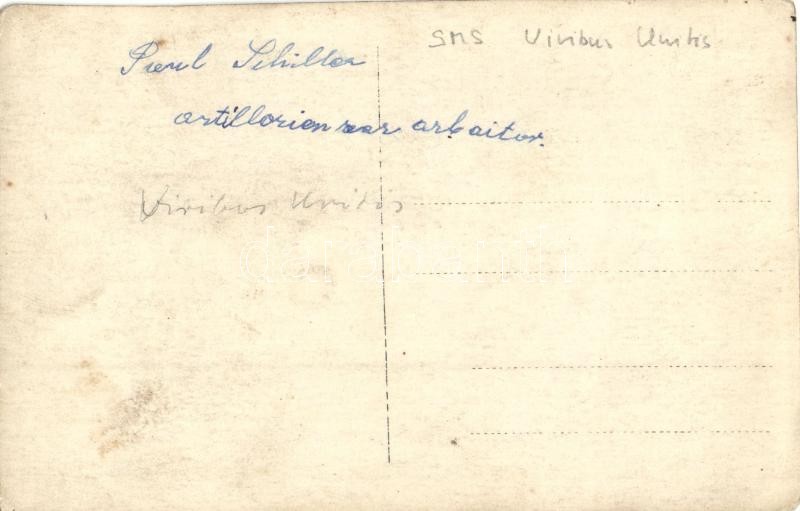 SMS Viribus Unitis
Paul Schiller
artillerien arbaiter.
Viribus Unitis
darabanth